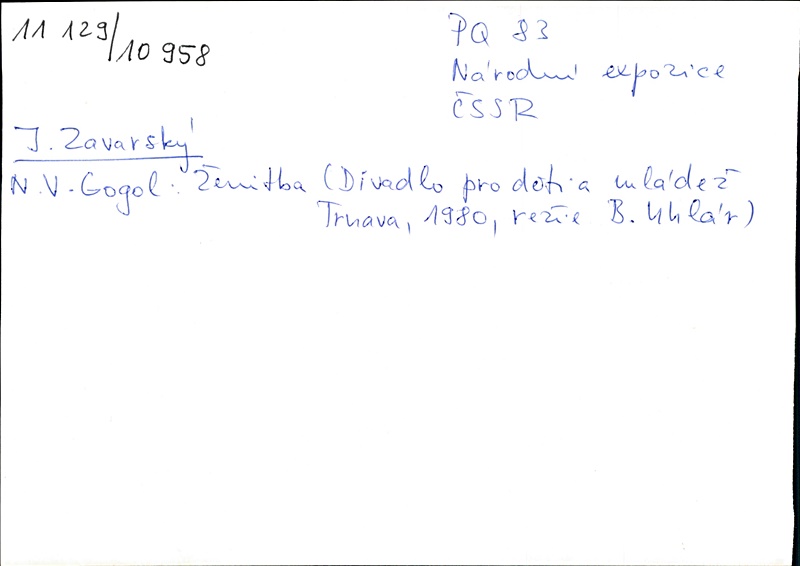 11 129/10 958
PQ 83
Národní expozice
ČSSR
J. Zavarský
N.V. Gogol: Ženitba (Divadlo pro děti a mládež
Trnava, 1980, režie B. Uhlár)